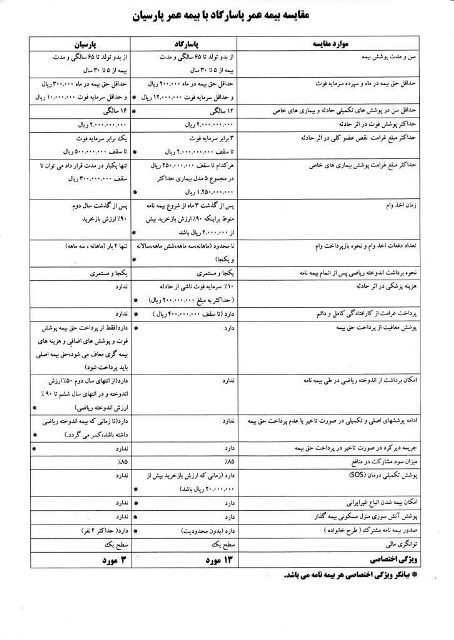 مقایسه بیمه عمر پاسارگاد با بیمه عمر پارسیان
موارد مقایسه پاسارگاد پارسیان
سن و مدت پوشش بیمه از بدو تولد تا ۶۵ سالگی و مدت از بدو تولد تا ۶۵ سالگی و مدت
بیمه از ۵ تا ۳۰ سال بیمه از ۵ تا ۳۰ سال
حداقل حق بیمه در ماه و سپرده سرمایه فوت حداقل حق بیمه در ماه ۲۰۰.۰۰۰ ریال حداقل حق بیمه در ماه ۳۰۰.۰۰۰ ریال
و حداقل سرمایه فوت ۱۲.۰۰۰.۰۰۰ ریال * و حداقل سرمایه فوت ۱۰.۰۰۰.۰۰۰ ریال
حداقل سن در پوشش های تکمیلی حادثه و بیماری های خاص ۱۲ سالگی * ۱۶ سالگی
حداکثر پوشش فوت در اثر حادثه ریال ریال
حداکثر مبلغ غرامت نقص عضو کلی در اثر حادثه ۳ برابر سرمایه فوت یک برابر سرمایه فوت
تا سقف ریال * تا سقف ریال
حداکثر مبلغ غرامت پوشش بیماری های خاص هرکدام تا سقف ۲۵۰.۰۰۰.۰۰۰ ریال تنها یکبار در مدت قرار داد می توان تا
در مجموع ۵ مدل بیماری حداکثر سقف ۳۰۰.۰۰۰.۰۰۰ ریال
۱.۲۵۰.۰۰۰.۰۰۰ ریال *
زمان اخذ وام پس از گذشت ۳ ماه از شروع بیمه نامه پس از گذشت سال دوم
منوط براینکه ۹۰٪ ارزش بازخرید بیش ۹۰٪ ارزش بازخرید
از ۲.۰۰۰.۰۰۰ ریال باشد *
تعداد دفعات اخذ وام و نحوه بازپرداخت وام نا محدود (ماهانه،سه ماهه،شش ماهه،سالانه تنها ۲ بار (ماهانه ، سه ماهه)
و یکجا) *
نحوه برداشت اندوخته ریاضی پس از اتمام بیمه نامه یکجا و مستمری یکجا و مستمری
هزینه پزشکی در اثر حادثه ۱۰٪ سرمایه فوت ناشی از حادثه ندارد
(حداکثر به مبلغ ۲۰۰.۰۰۰.۰۰۰ ریال) *
پرداخت غرامت از کارافتادگی کامل و دائم دارد (تا سقف ۴۰۰.۰۰۰.۰۰۰ ریال) * ندارد
پوشش معافیت از پرداخت حق بیمه دارد * دارد(فقط از پرداخت حق بیمه پوشش
فوت و پوشش های اضافی و هزینه های
بیمه گری معاف می شود،حق بیمه اصلی
باید پرداخت شود)
امکان برداشت از اندوخته ریاضی در طی بیمه نامه ندارد دارد(از انتهای سال دوم ۵۰٪ ارزش
اندوخته و در انتهای سال ششم تا ۹۰٪
ارزش اندوخته ریاضی) *
ادامه پوششهای اصلی و تکمیلی در صورت تاخیر یا عدم پرداخت حق بیمه ندارد دارد(تا زمانی که بیمه اندوخته ریاضی
داشته باشد،کسر می گردد.) *
جریمه دیرکرد در صورت تاخیر در پرداخت حق بیمه دارد ندارد *
میزان سود مشارکت در منافع ۸۵٪ ۸۵٪
پوشش تکمیلی درمان (SOS) دارد (زمانی که ارزش بازخرید بیش از ندارد
۲۰.۰۰۰.۰۰۰ ریال باشد) *
امکان بیمه شدن اتباع غیرایرانی دارد * ندارد
پوشش آتش سوزی منزل مسکونی بیمه گذار دارد * ندارد
صدور بیمه نامه مشترک (طرح خانواده) دارد (بدون محدودیت) * دارد (حداکثر ۴ نفر)
توانگری مالی سطح یک سطح یک
ویژگی اختصاصی ۱۳ مورد ۳ مورد
* بیانگر ویژگی اختصاصی هر بیمه نامه می باشد.